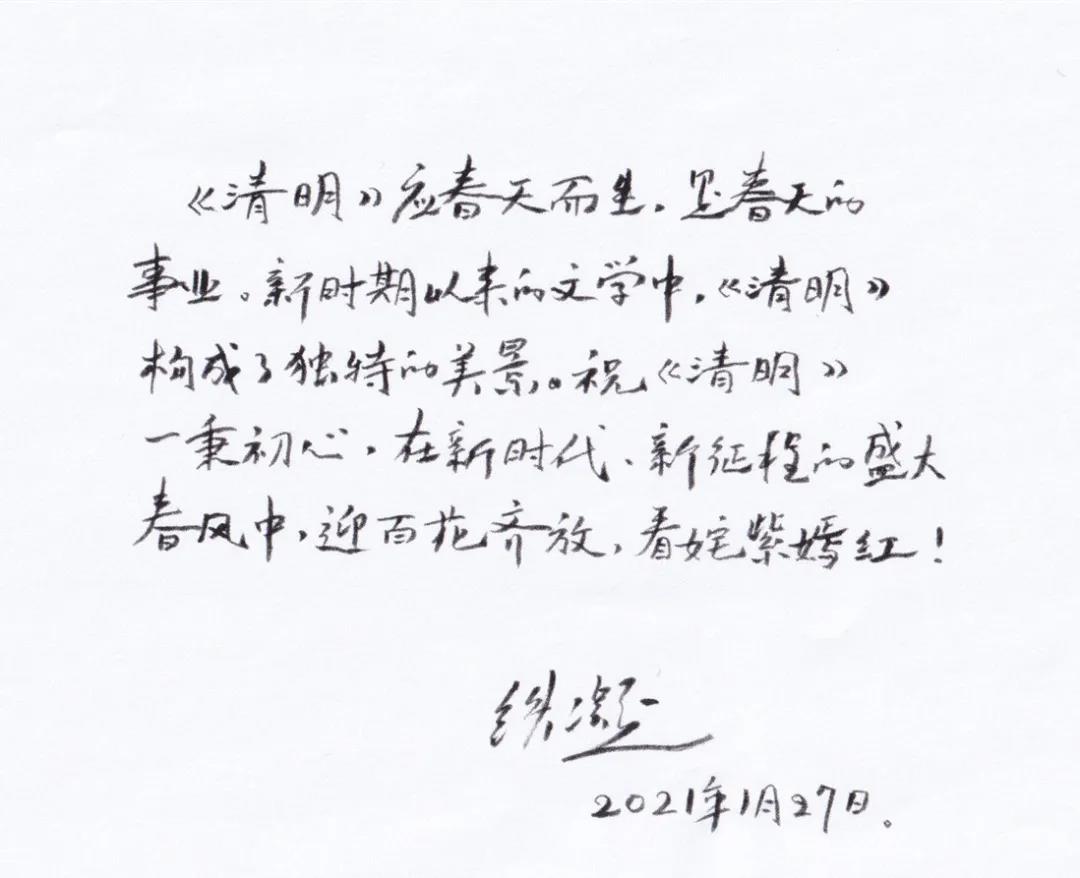 《清明》应春天而生，是春天的
事业。新时期以来的文学中，《清明》
构成了独特的美景。祝《清明》
一秉初心，在新时代、新征程的盛大
春风中，迎百花齐放，看姹紫嫣红！
铁凝
2021年1月27日。